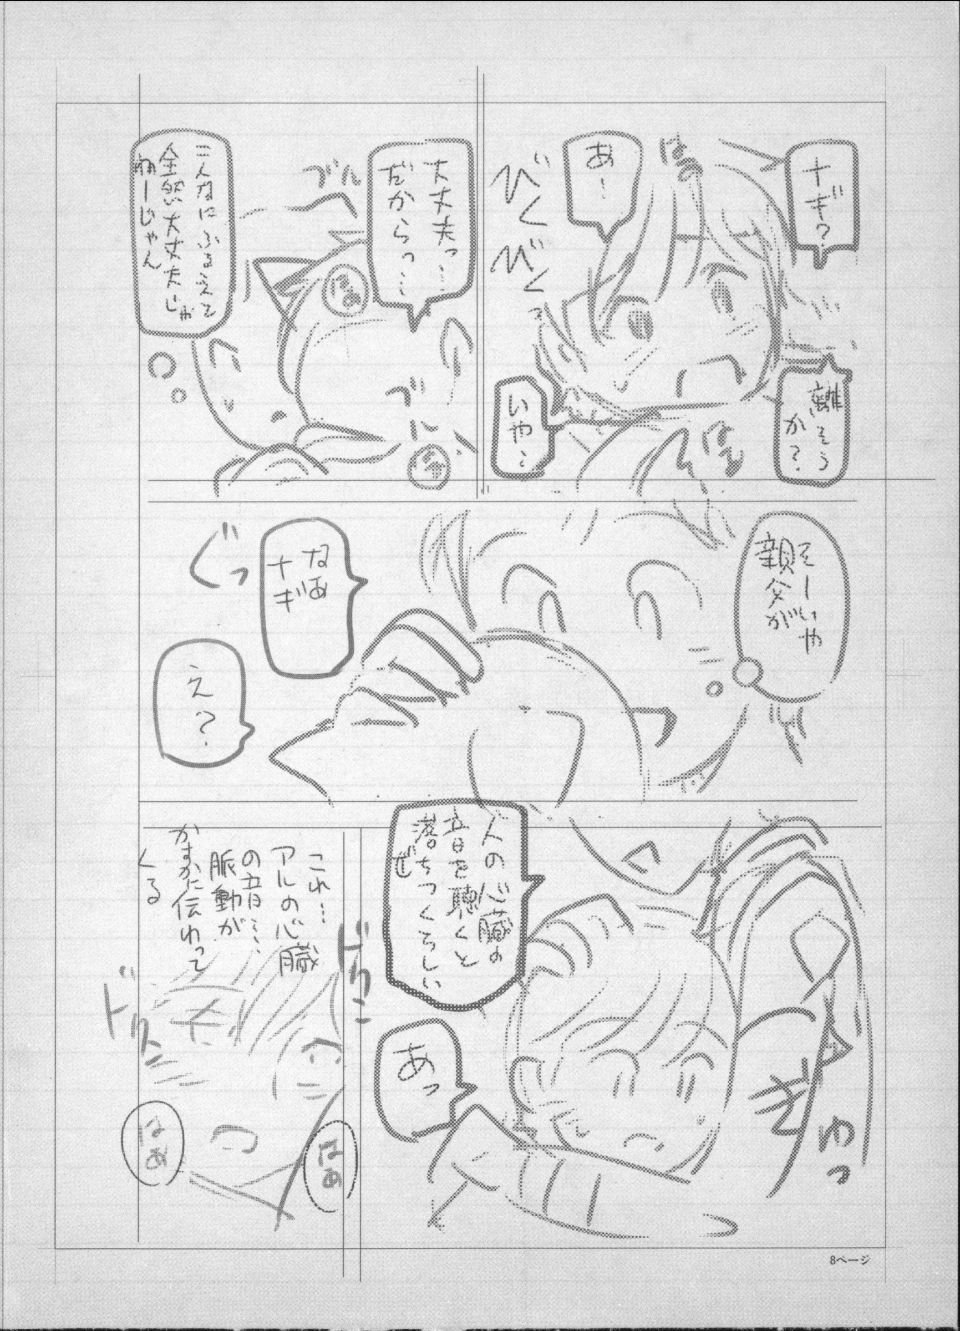 ナギ?
はあ
あ…
びくびく
離そう
か?
いや…
はあ
大丈夫っ…
だからっ…
ブル
はあ
ブル
はあ
こんなにふるえて
全然大丈夫じゃ
ねーじゃん
そーいや
親父が
なあ
ナギ
ぐっ
え?
人の心臓の
音を聴くと
落ちつくらしい
ぜ
あっ
ぎゅっ
これ…
アルの心臓
の音…
脈動が
かすかに伝わって
くる
ドクン
ドクン
はあ
はあ
8ページ